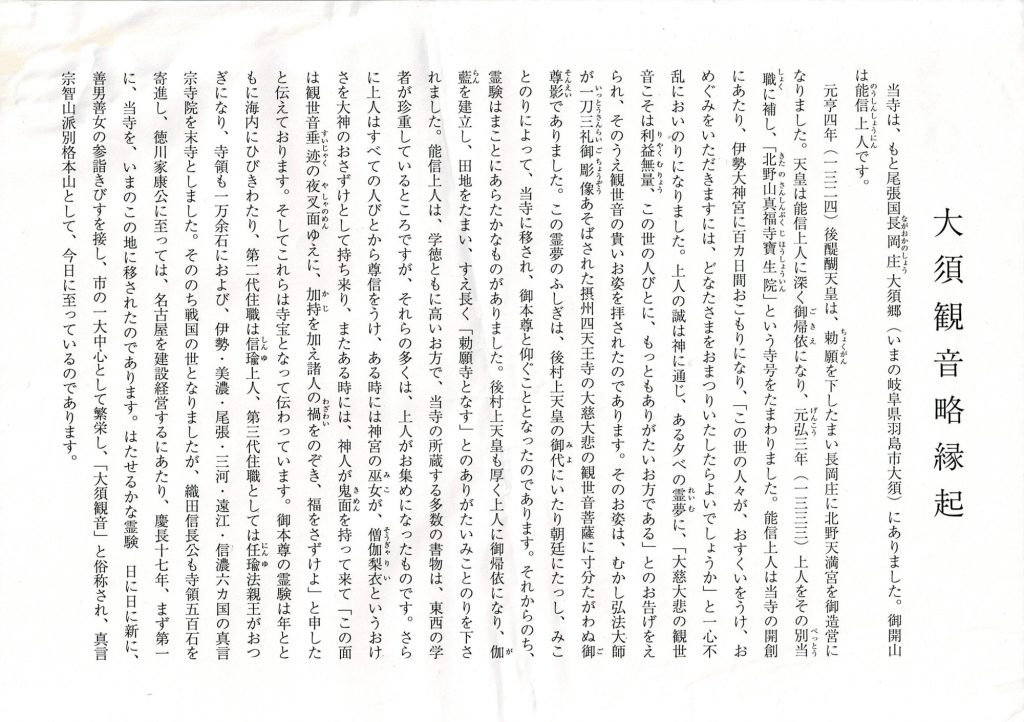 大須観音略縁起
当寺は、もと尾張国長岡庄大須郷（いまの岐阜県羽島市大須）にありました。御開山
は能信上人です。
元亨四年（一三二四）後醍醐天皇は、勅願を下したまい長岡庄に北野天満宮を御造営に
なりました。天皇は能信上人に深く御帰依になり、元弘三年（一三三三）上人をその別当
職に補し、「北野山真福寺寶生院」という寺号をたまわりました。能信上人は当寺の開創
にあたり、伊勢大神宮に百カ日間おこもりになり、「この世の人々が、おすくいをうけ、お
めぐみをいただきますには、どなたさまをおまつりいたしたらよいでしょうか」と一心不
乱においのりになりました。上人の誠は神に通じ、ある夕べの霊夢に、「大慈大悲の観世
音こそは利益無量、この世の人びとに、もっともありがたいお方である」とのお告げをえ
られ、そのうえ観世音の貴いお姿を拝されたのであります。そのお姿は、むかし弘法大師
が一刀三礼御彫像あそばされた摂州四天王寺の大慈大悲の観世音菩薩に寸分たがわぬ御
尊影でありました。この霊夢のふしぎは、後村上天皇の御代にいたり朝廷にたっし、みこ
とのりによって、当寺に移され、御本尊と仰ぐこととなったのであります。それからのち、
霊験はまことにあらたかなものがありました。後村上天皇も厚く上人に御帰依になり、伽
藍を建立し、田地をたまい、すえ長く「勅願寺となす」とのありがたいみことのりを下さ
れました。能信上人は、学徳ともに高いお方で、当寺の所蔵する多数の書物は、東西の学
者が珍重しているところですが、それらの多くは、上人がお集めになったものです。さら
に上人はすべての人びとから尊信をうけ、ある時には神宮の巫女が、僧伽梨衣というおけ
さを大神のおさずけとして持ち来り、またある時には、神人が鬼面を持って来て「この面
は観世音垂迹の夜叉面ゆえに、加持を加え諸人の禍をのぞき、福をさずけよ」と申した
と伝えております。そしてこれらは寺宝となって伝わっています。御本尊の霊験は年とと
もに海内にひびきわたり、第二代住職は信瑜上人、第三代住職としては任瑜法親王がおつ
ぎになり、寺領も一万余石におよび、伊勢・美濃・尾張・三河・遠江・信濃六カ国の真言
宗寺院を末寺としました。そののち戦国の世となりましたが、織田信長公も寺領五百石を
寄進し、徳川家康公に至っては、名古屋を建設経営するにあたり、慶長十七年、まず第一
に、当寺を、いまのこの地に移されたのであります。はたせるかな霊験　日に日に新に、
善男善女の参詣きびすを接し、市の一大中心として繁栄し、「大須観音」と俗称され、真言
宗智山派別格本山として、今日に至っているのであります。